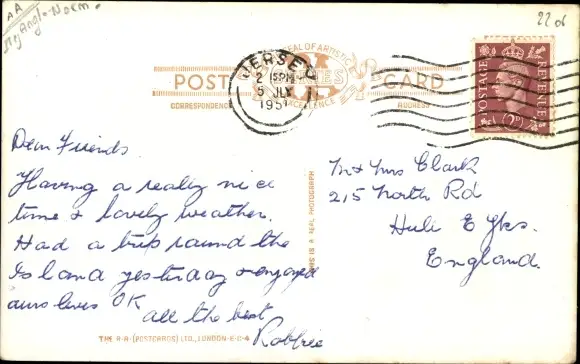 AA
Anglo-Norm.
22 06
JERSEY
2 15PM
5 JLY
1951
SEAL OF ARTISTIC
EXCELLENCE
POST CARD
CORRESPONDENCE
ADDRESS
POSTAGE
REVENUE
2D
Dear Friends
Having a really nice
time & lovely weather.
Had a trip round the
Island yesterday & engaged
ourselves OK
all the best
Robbie
THIS IS A REAL PHOTOGRAPH
Mr & Mrs Clark
215 North Rd
Hull E Yks.
England.
THE R.A. (POSTCARDS) LTD., LONDON-E-C-4